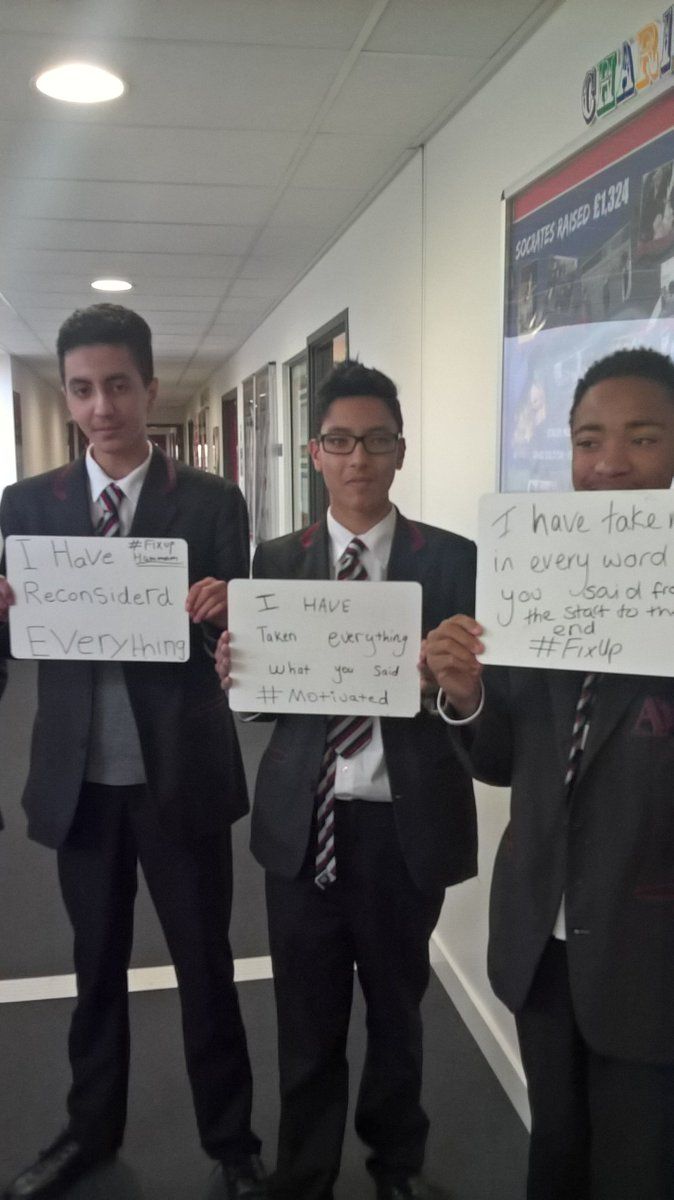 CHARI
SOCRATES RAISED £1,324
I Have #FixUp
Hammam
Reconsiderd
Everything
I HAVE
Taken everything
what you said
#Motivated
I have taken
in every word
you said fro
the start to the
end
#FixUp